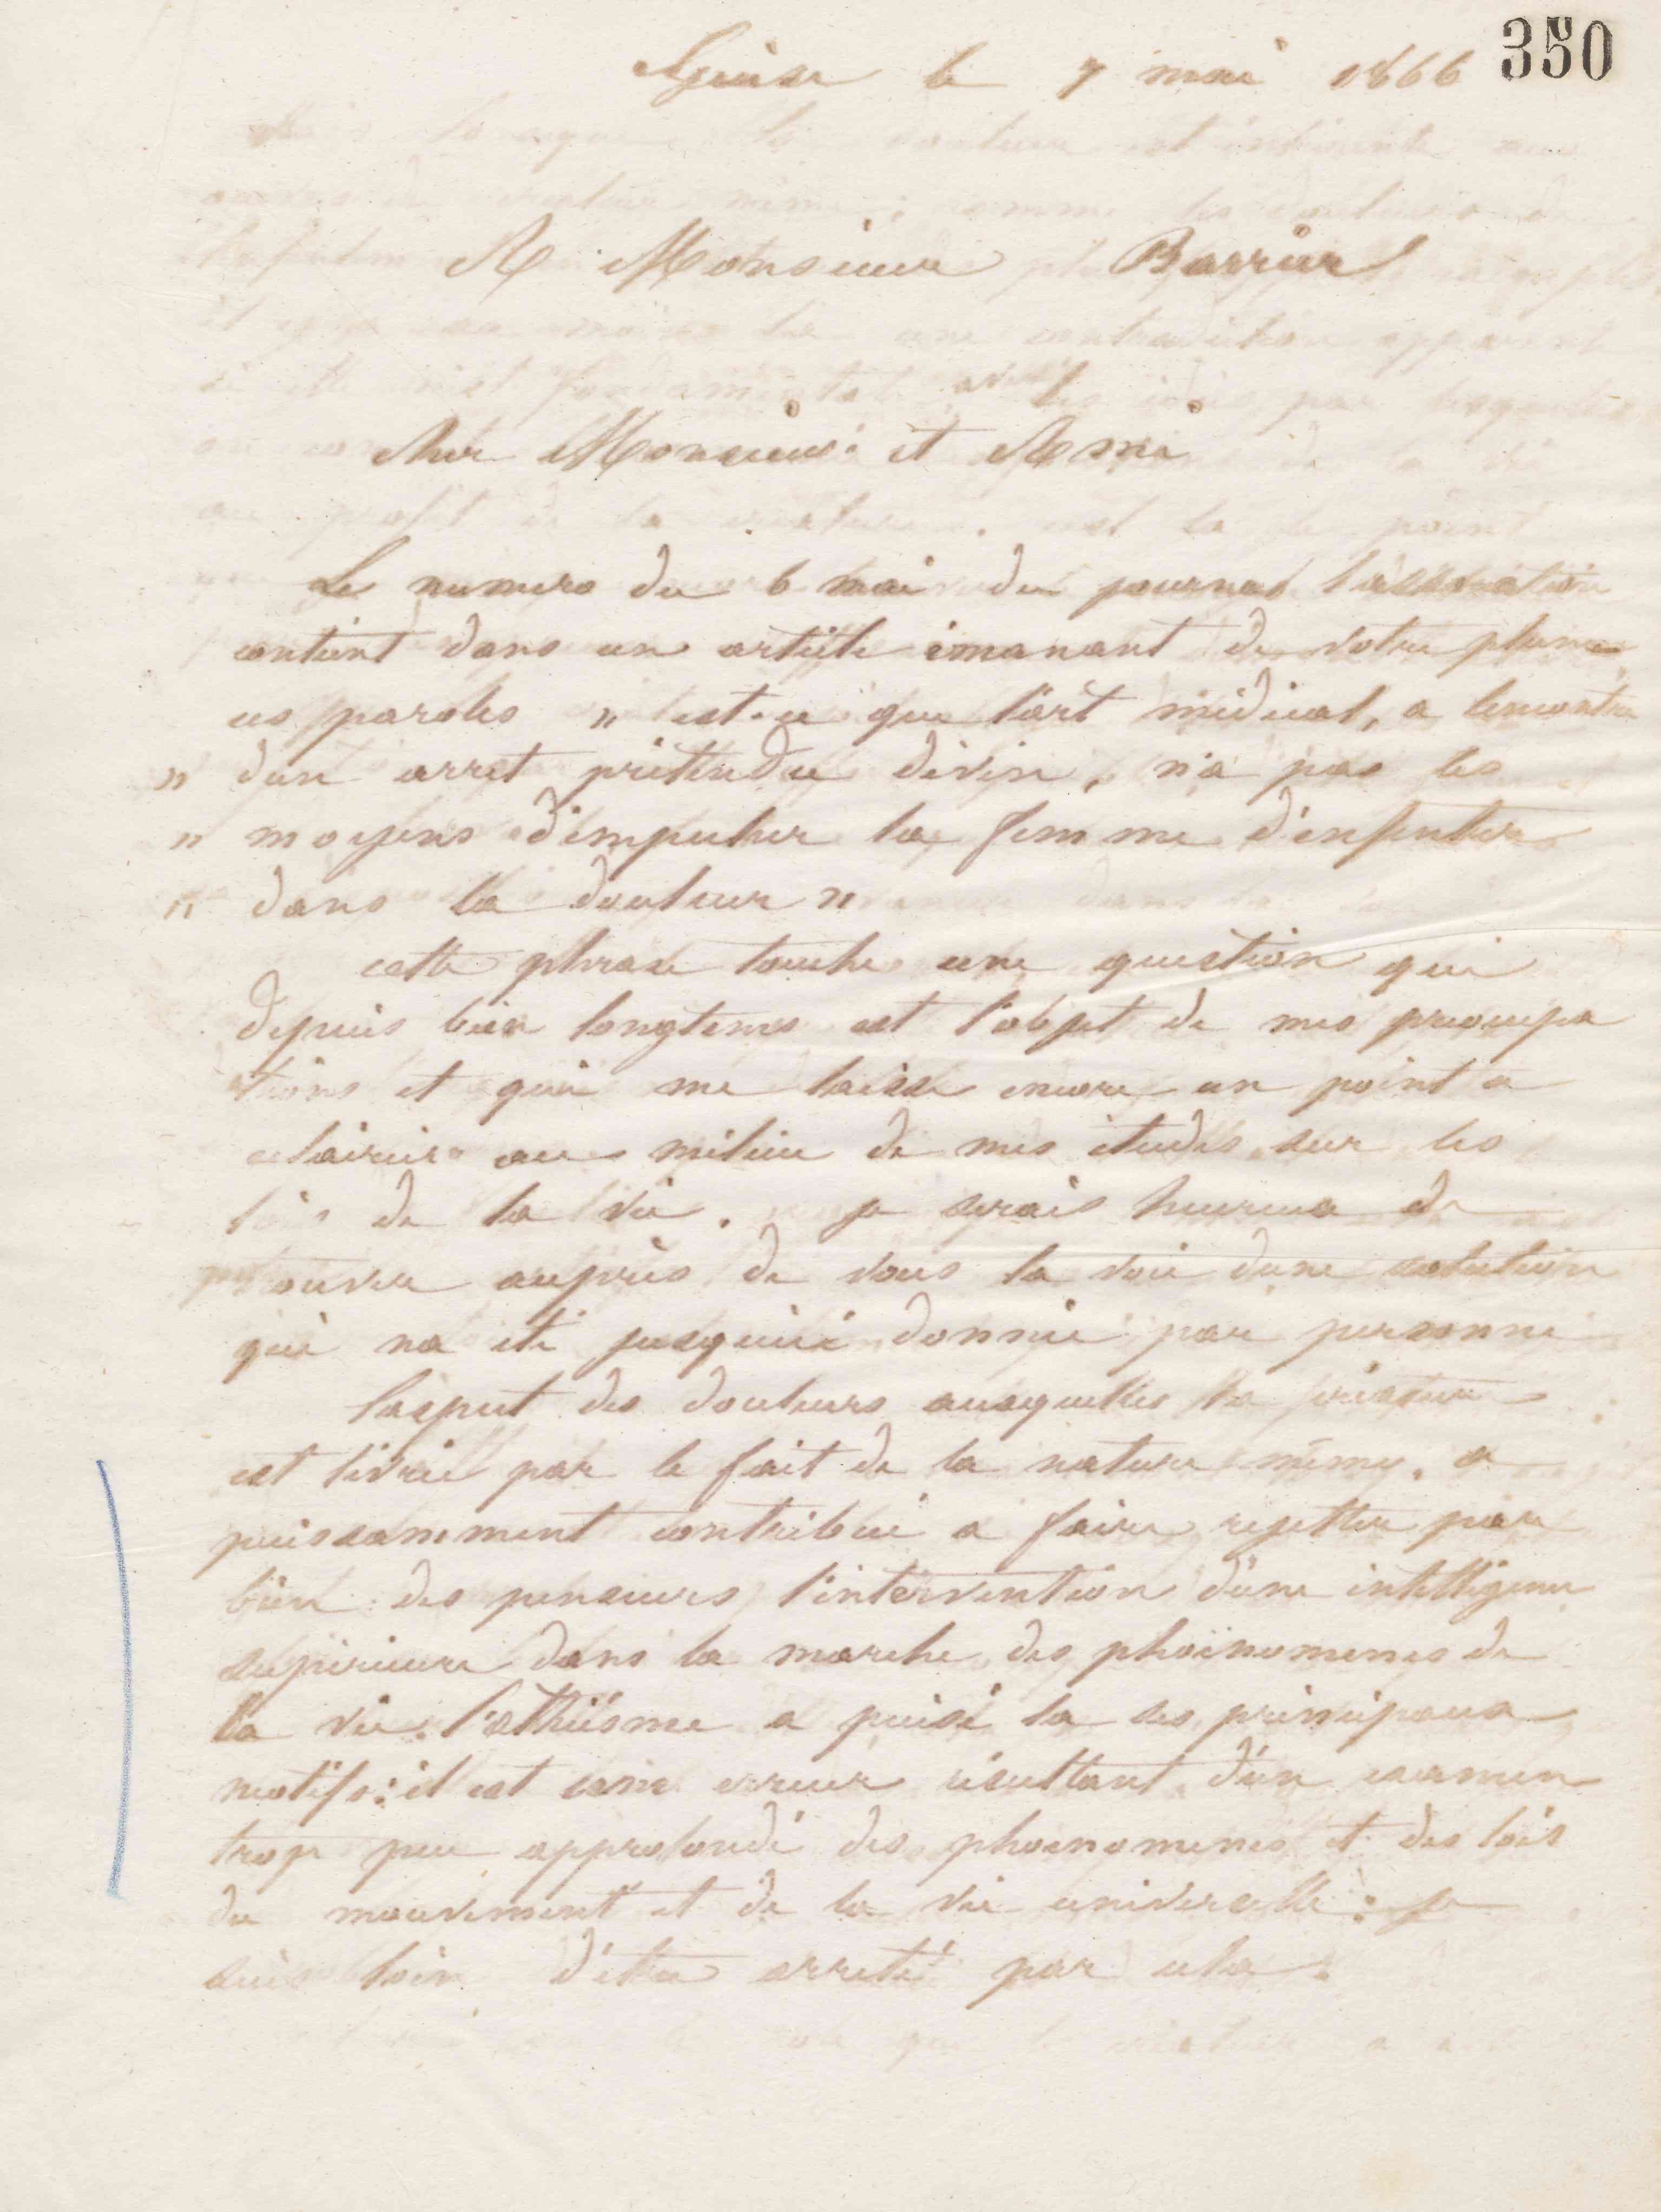 350
Guise le 7 mai 1866
A Monsieur Barrier
Cher Monsieur et Ami
Le numero du 6 mai du journal l'association
contient dans un article émanant de votre plume
ces paroles " est-ce que l'art médical, a lencontre
" dun arret prétendu divin, n'a pas les
" moyens d'empecher la femme d'enfanter
" dans la douleur "
cette phrase touche une question qui
depuis bien longtems est l'objet de mes preocupa
tions et qui me laisse encore un point a
eclaircir au milieu de mes études sur les
lois de la vie. je serais heureux de
trouver auprès de vous la voie dune solution
qui na été jusquici donnée par personne
laspect des douleurs auxquelles la créature
est livrée par le fait de la nature même, a
puissamment contribué a faire rejetter par
bien des penseurs l'intervention d'une intelligence
supérieure dans la marche des phoénomenes de
la vie. l'athéisme a puisé la ses principaux
motifs: il est une erreur résultant d'un examen
trop peu approfondi des phoenomenes et des lois
du mouvement et de la vie universelle: je
suis loin d'être arreté par cela.